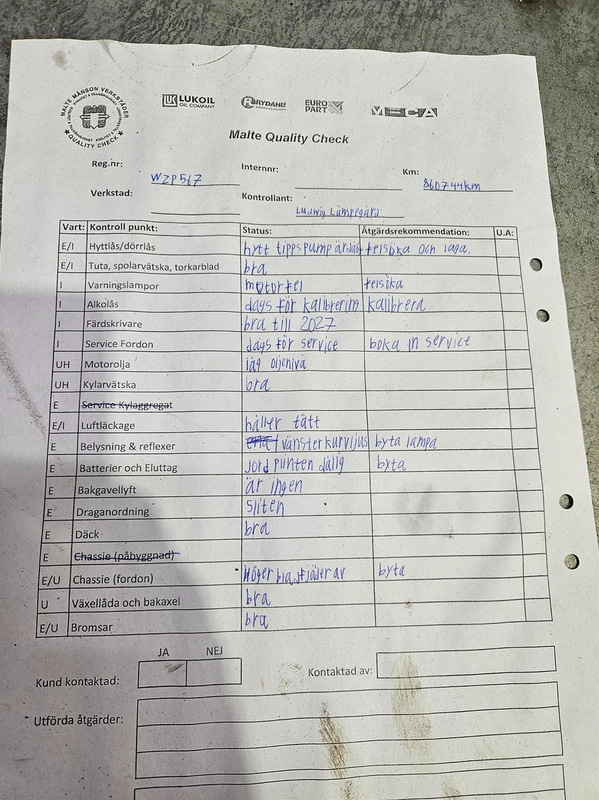 MALTE MÅNSON VERKSTÄDER
QUALITY CHECK
LUKOIL
OIL COMPANY
RYDAHLS
EURO PART
MECA
Malte Quality Check
Reg.nr: WZP567 Internnr: Km: 860744km
Verkstad: Kontrollant: Ludwig Lämpegård
Vart: Kontroll punkt: Status: Åtgärdsrekommendation: U.A:
E/I Hyttlås/dörrlås hytt tippspump är felsöka och laga.
E/I Tuta, spolarvätska, torkarblad bra
I Varningslampor motorfel felsöka
I Alkolås dags för kalibrering kalibrera
I Färdskrivare bra till 2027
I Service Fordon dags för service boka in service
UH Motorolja låg oljenivå
UH Kylarvätska bra
E Service Kylaggregat
E/I Luftläckage håller tätt
E Belysning & reflexer vänster kurvljus byta lampa
E Batterier och Eluttag jord punten dålig byta
E Bakgavellyft är ingen
E Draganordning sliten
E Däck bra
E Chassie (påbyggnad)
E/U Chassie (fordon) Höger av byta
U Växellåda och bakaxel bra
E/U Bromsar bra
JA NEJ
Kund kontaktad: Kontaktad av:
Utförda åtgärder: